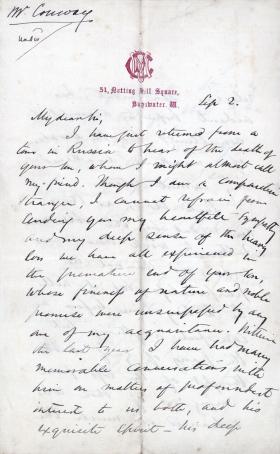 Mr. Conway
51, Notting Hill Square,
Bayswater. W.
Sep 2.
My dear Sir,
I have just returned from a
tour in Russia to hear of the death of
your son, whom I might almost call
my friend. Though I am a comparative
stranger, I cannot refrain from
sending you my heartfelt sympathy
and my deep sense of the heavy
loss we have all experienced in
the premature end of your son,
whose fineness of nature and noble
promise were unsurpassed by any
one of my acquaintance. Within
the last year I have had many
memorable conversations with
him on matters of profoundest
interest to us both, and his
exquisite spirit – his deep